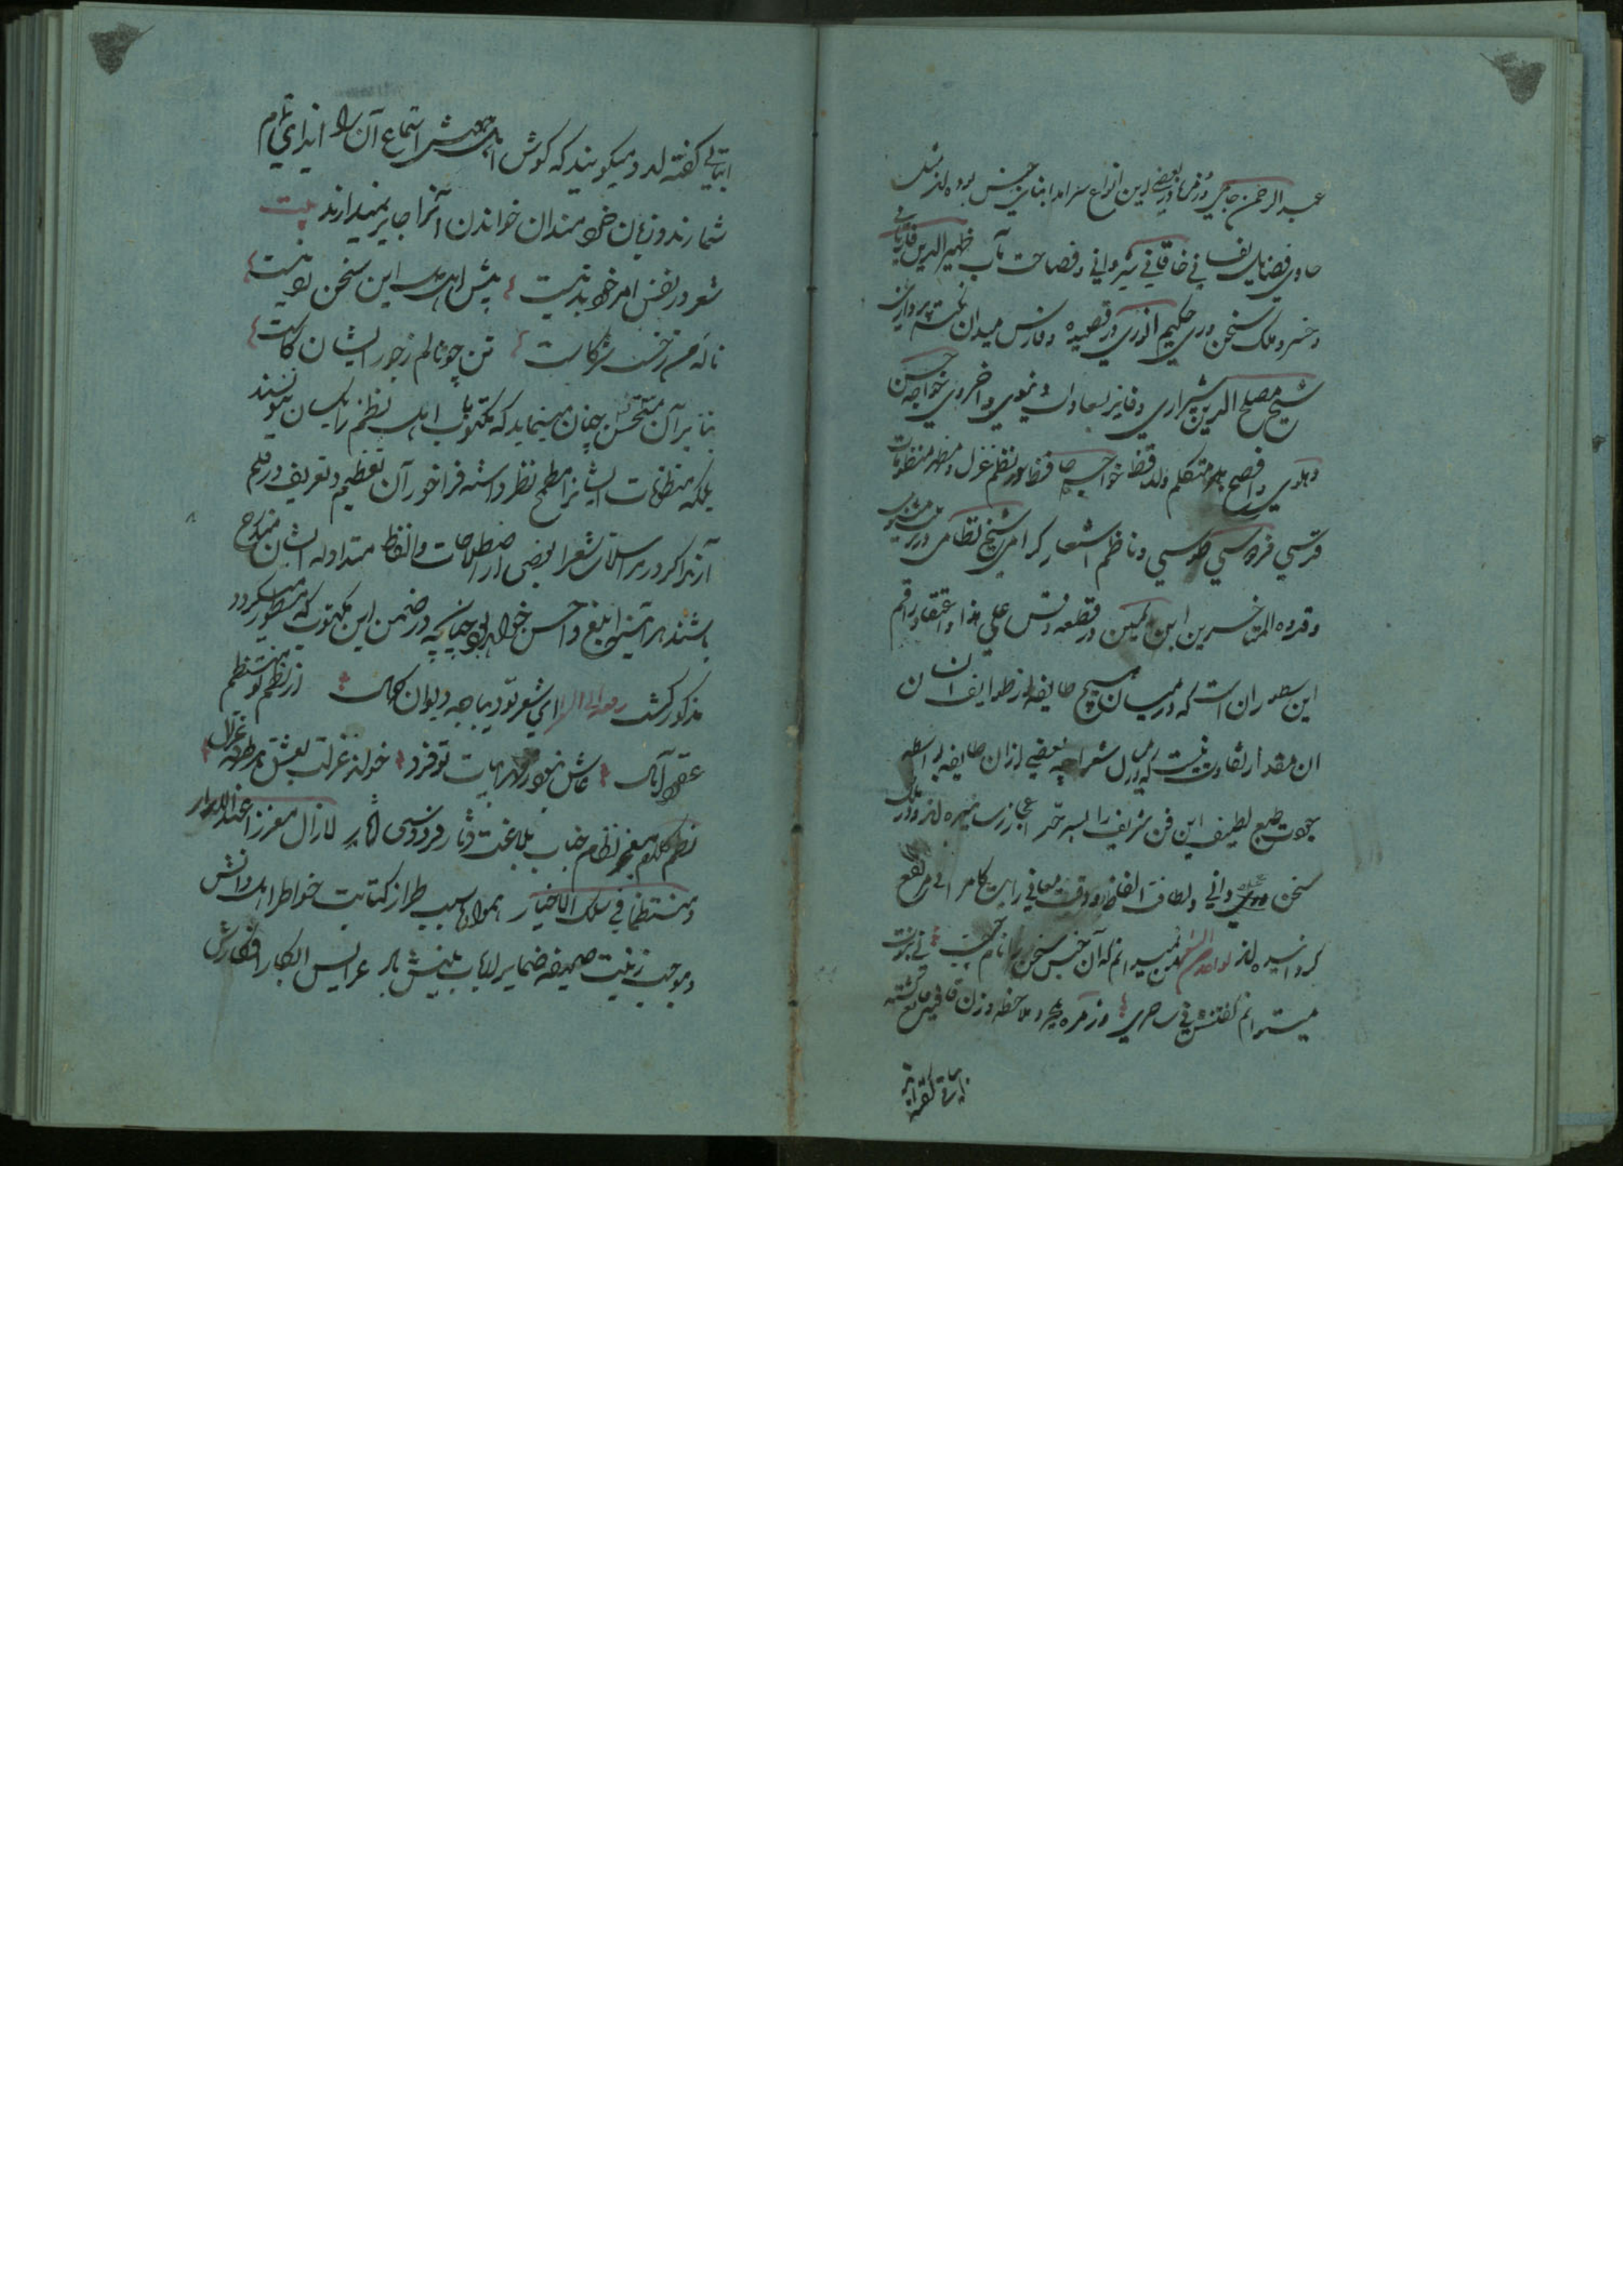 عبد الرحمن جامی و زمره‌ء بعضی این انواع سرآمد ابنای جنس بوده‌اند مثل
حاوی فضایل نفسانی خاقانی شیروانی و فصاحت مآب ظهیر الدین فاریابی
و خسرو ملک سخن وری حکیم انوری در قصیده و فارس میدان نکته پردازی
شیخ مصلح الدین شیرازی و فایز بسعادات دنیوی و اخروی خواجه حسن
دهلوی و افصح هر متکلم و لافظ خواجه حافظ در نظم غزل و مظهر منظومات
قدسی فردوسی طوسی و ناظم اشعار گرامی شیخ نظامی در مثنوی
و قدوه المتاخرین ابن یمین در قطعه و قس علی هذا و اعتقاد راقم
این سطور آن است که در میان هیچ طایفه از طوایف انسان
آن مقدار تفاوت نیست که در میان شعرا چه بعضی از آن طایفه بواسطه
جودت طبع لطیف این فن شریف را بسرحد اعجاز رسانیده‌اند و در ممالک
سخن دانی و لطافت الفاظ و دقت معانی رایت کامرانی مرتفع
گردانیده‌اند نمیدانم که آن جنس سخن را نام چیست نی نبوت
میتوانم گفتنش نی ساحری و زمره مجرد ملاحظه وزن و قافیه قانع گشته
ابیاتی گفته‌اند
ابیاتی گفته‌اند و میگویند که گوش اهل هوش استماع آن را ایذای تمام
شمارند و زبان خردمندان خواندن آنرا جایز نمیدارند بیت
شعر در نفس امر خود بد نیست پیش اهل دل این سخن رد نیست
ناله من ز خست شرکاست تن چو نالم ز جور ایشان کاست
بنابر آن مستحسن چنان مینماید که مکتوب اهل نظم را یکسان ننویسند
بلکه منظومات ایشانرا مطمح نظر داشته فراخور آن تعظیم و تعریف در قلم
آرند اگر در مراسلات شعرا بعضی از اصطلاحات و الفاظ متداوله ایشان مندرج
باشند هر آینه ابلغ و احسن خواهد بود چنانچه در ضمن این مکتوب که مسطور میگردد
مذکور گشت ای شعر تو دیباچه دیوان کمال از نظم تو منتظم
عقود آمال
نظم کلام معجز نظام جناب بلاغت دثار فردوسی آثار لازال معززا عند الابرار
و منتظما فی سلک الاخیار همواره سبب طراز کتابت خواطر اهل دانش
و موجب زینت صحیفه ضمایر ارباب بینش باد عرایس ابکار افکارش